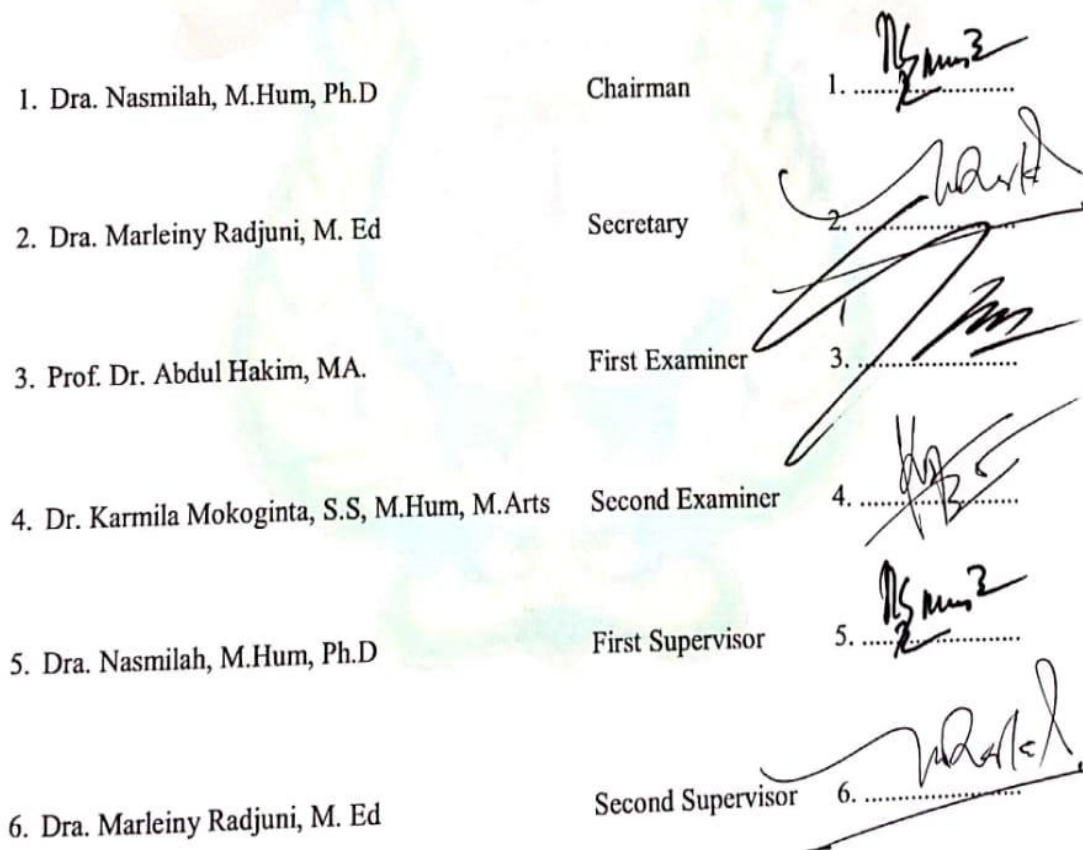 1. Dra. Nasmilah, M.Hum, Ph.D Chairman 1. ....................
2. Dra. Marleiny Radjuni, M. Ed Secretary 2. ....................
3. Prof. Dr. Abdul Hakim, MA. First Examiner 3. ....................
4. Dr. Karmila Mokoginta, S.S, M.Hum, M.Arts Second Examiner 4. ....................
5. Dra. Nasmilah, M.Hum, Ph.D First Supervisor 5. ....................
6. Dra. Marleiny Radjuni, M. Ed Second Supervisor 6. ....................